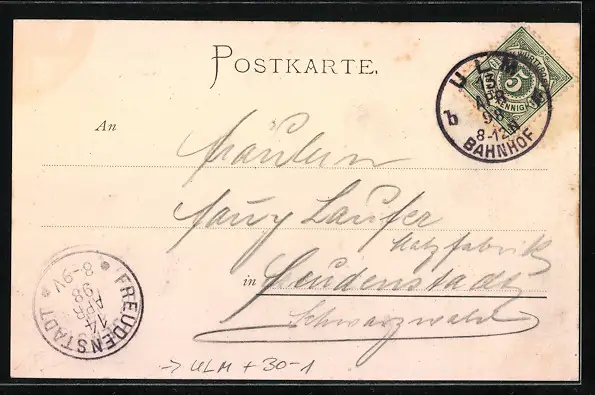 POSTKARTE.
ULM
13
APR
98
8-12
b
BAHNHOF
5
PFENNIG
An
Fräulein
Fany Laufer
fabrik
in Freudenstadt
Schwarzwald
FREUDENSTADT
14
APR
98
8-9V
→ ULM + 30-1